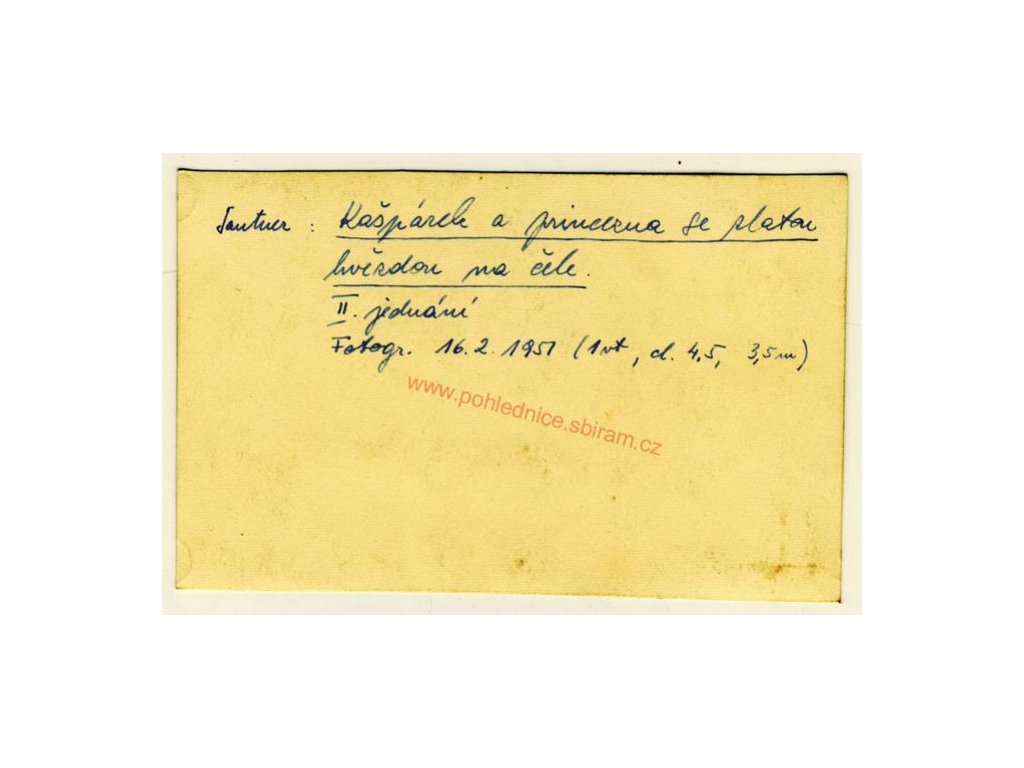 Tantner : Kašpárek a princezna se zlatou
hvězdou na čele.
II. jednání
Fotogr. 16.2.1951 (1vt, cl. 4,5, 3,5m)
www.pohlednice.sbiram.cz